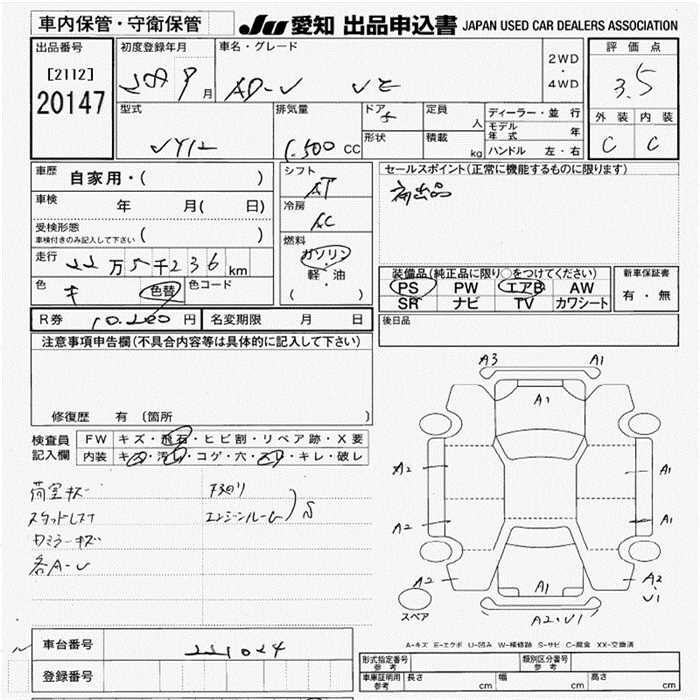 車内保管・守衛保管
JU 愛知 出品申込書 JAPAN USED CAR DEALERS ASSOCIATION
出品番号
[2112]
20147
初度登録年月
9 月
車名・グレード
AD-V VE
2WD
・
4WD
評価点
3.5
外装 内装
C C
型式
VY12
排気量
1.500 CC
ドア
5
形状
定員
人
積載
kg
ディーラー・並行
モデル年式 年
ハンドル 左・右
車歴
自家用・( )
車検
年 月( 日)
受検形態
車検付きのみ記入して下さい ( )
走行
22万5千236km
色
色替
色コード
シフト
AT
冷房
AC
燃料
ガソリン
・
軽・油
( )
セールスポイント(正常に機能するものに限ります)
初出品
装備品(純正品に限り○をつけてください)
PS PW エアB AW
SR ナビ TV カワシート
新車保証書
有・無
後日品
R券 10.260円 名変期限 月 日
注意事項申告欄(不具合内容等は具体的に記入して下さい)
修復歴 有(箇所
検査員
記入欄
FW キズ・飛石・ヒビ割・リペア跡・X要
内装 キズ・汚れ・コゲ・穴・スレ・キレ・破レ
荷室キズ
下廻り
スタットレス7
エンジンルーム
S
Wミラーキズ
各A-U
A3 A1
A1
A2 A1
A2 A1
A2 A1 A2
U1
A2・U1
スペア
A-キズ E-エクボ U-凹み W-補修跡 S-サビ C-腐食 XX-交換済
車台番号
221024
登録番号
形式指定番号
参考
類別区分番号
参考
車庫証明用
参考
長さ cm 幅 cm 高さ cm